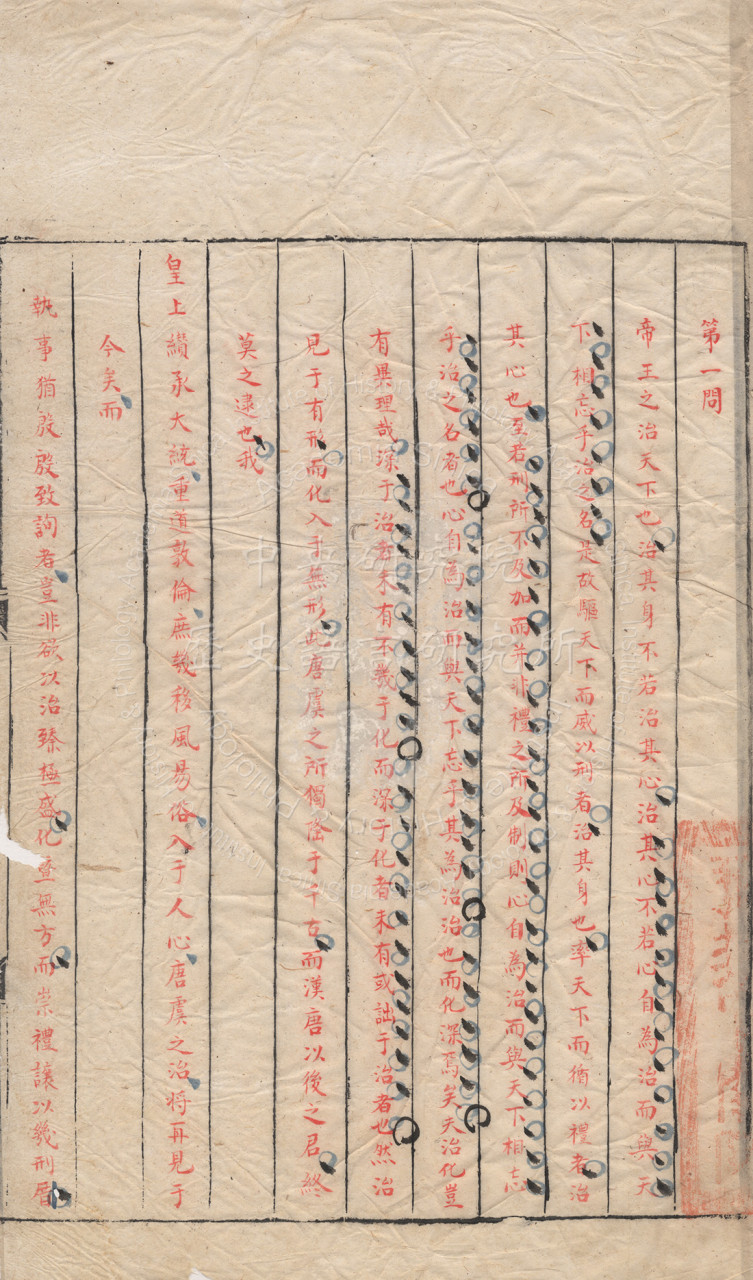 第一問
帝王之治天下也治其身不若治其心治其心不若心自為治而與天
下相忘乎治之名是故驅天下而威以刑者治其身也率天下而循以禮者治
其心也至若刑所不及加而并非禮之所及制則心自為治而與天下相忘
乎治之名者也心自為治而與天下忘乎其為治治也而化深焉矣夫治化豈
有異理哉深于治者未有不幾于化而深于化者未有或詘于治者也然治
見于有形而化入于無形此唐虞之所獨隆于千古而漢唐以後之君終
莫之逮也我
皇上纘承大統重道敦倫庶幾移風易俗入于人心唐虞之治將再見于
今矣而
執事猶殷殷致詢者豈非欲以治臻極盛化暨無方而崇禮讓以幾刑厝
中央研究院
歷史語言研究所